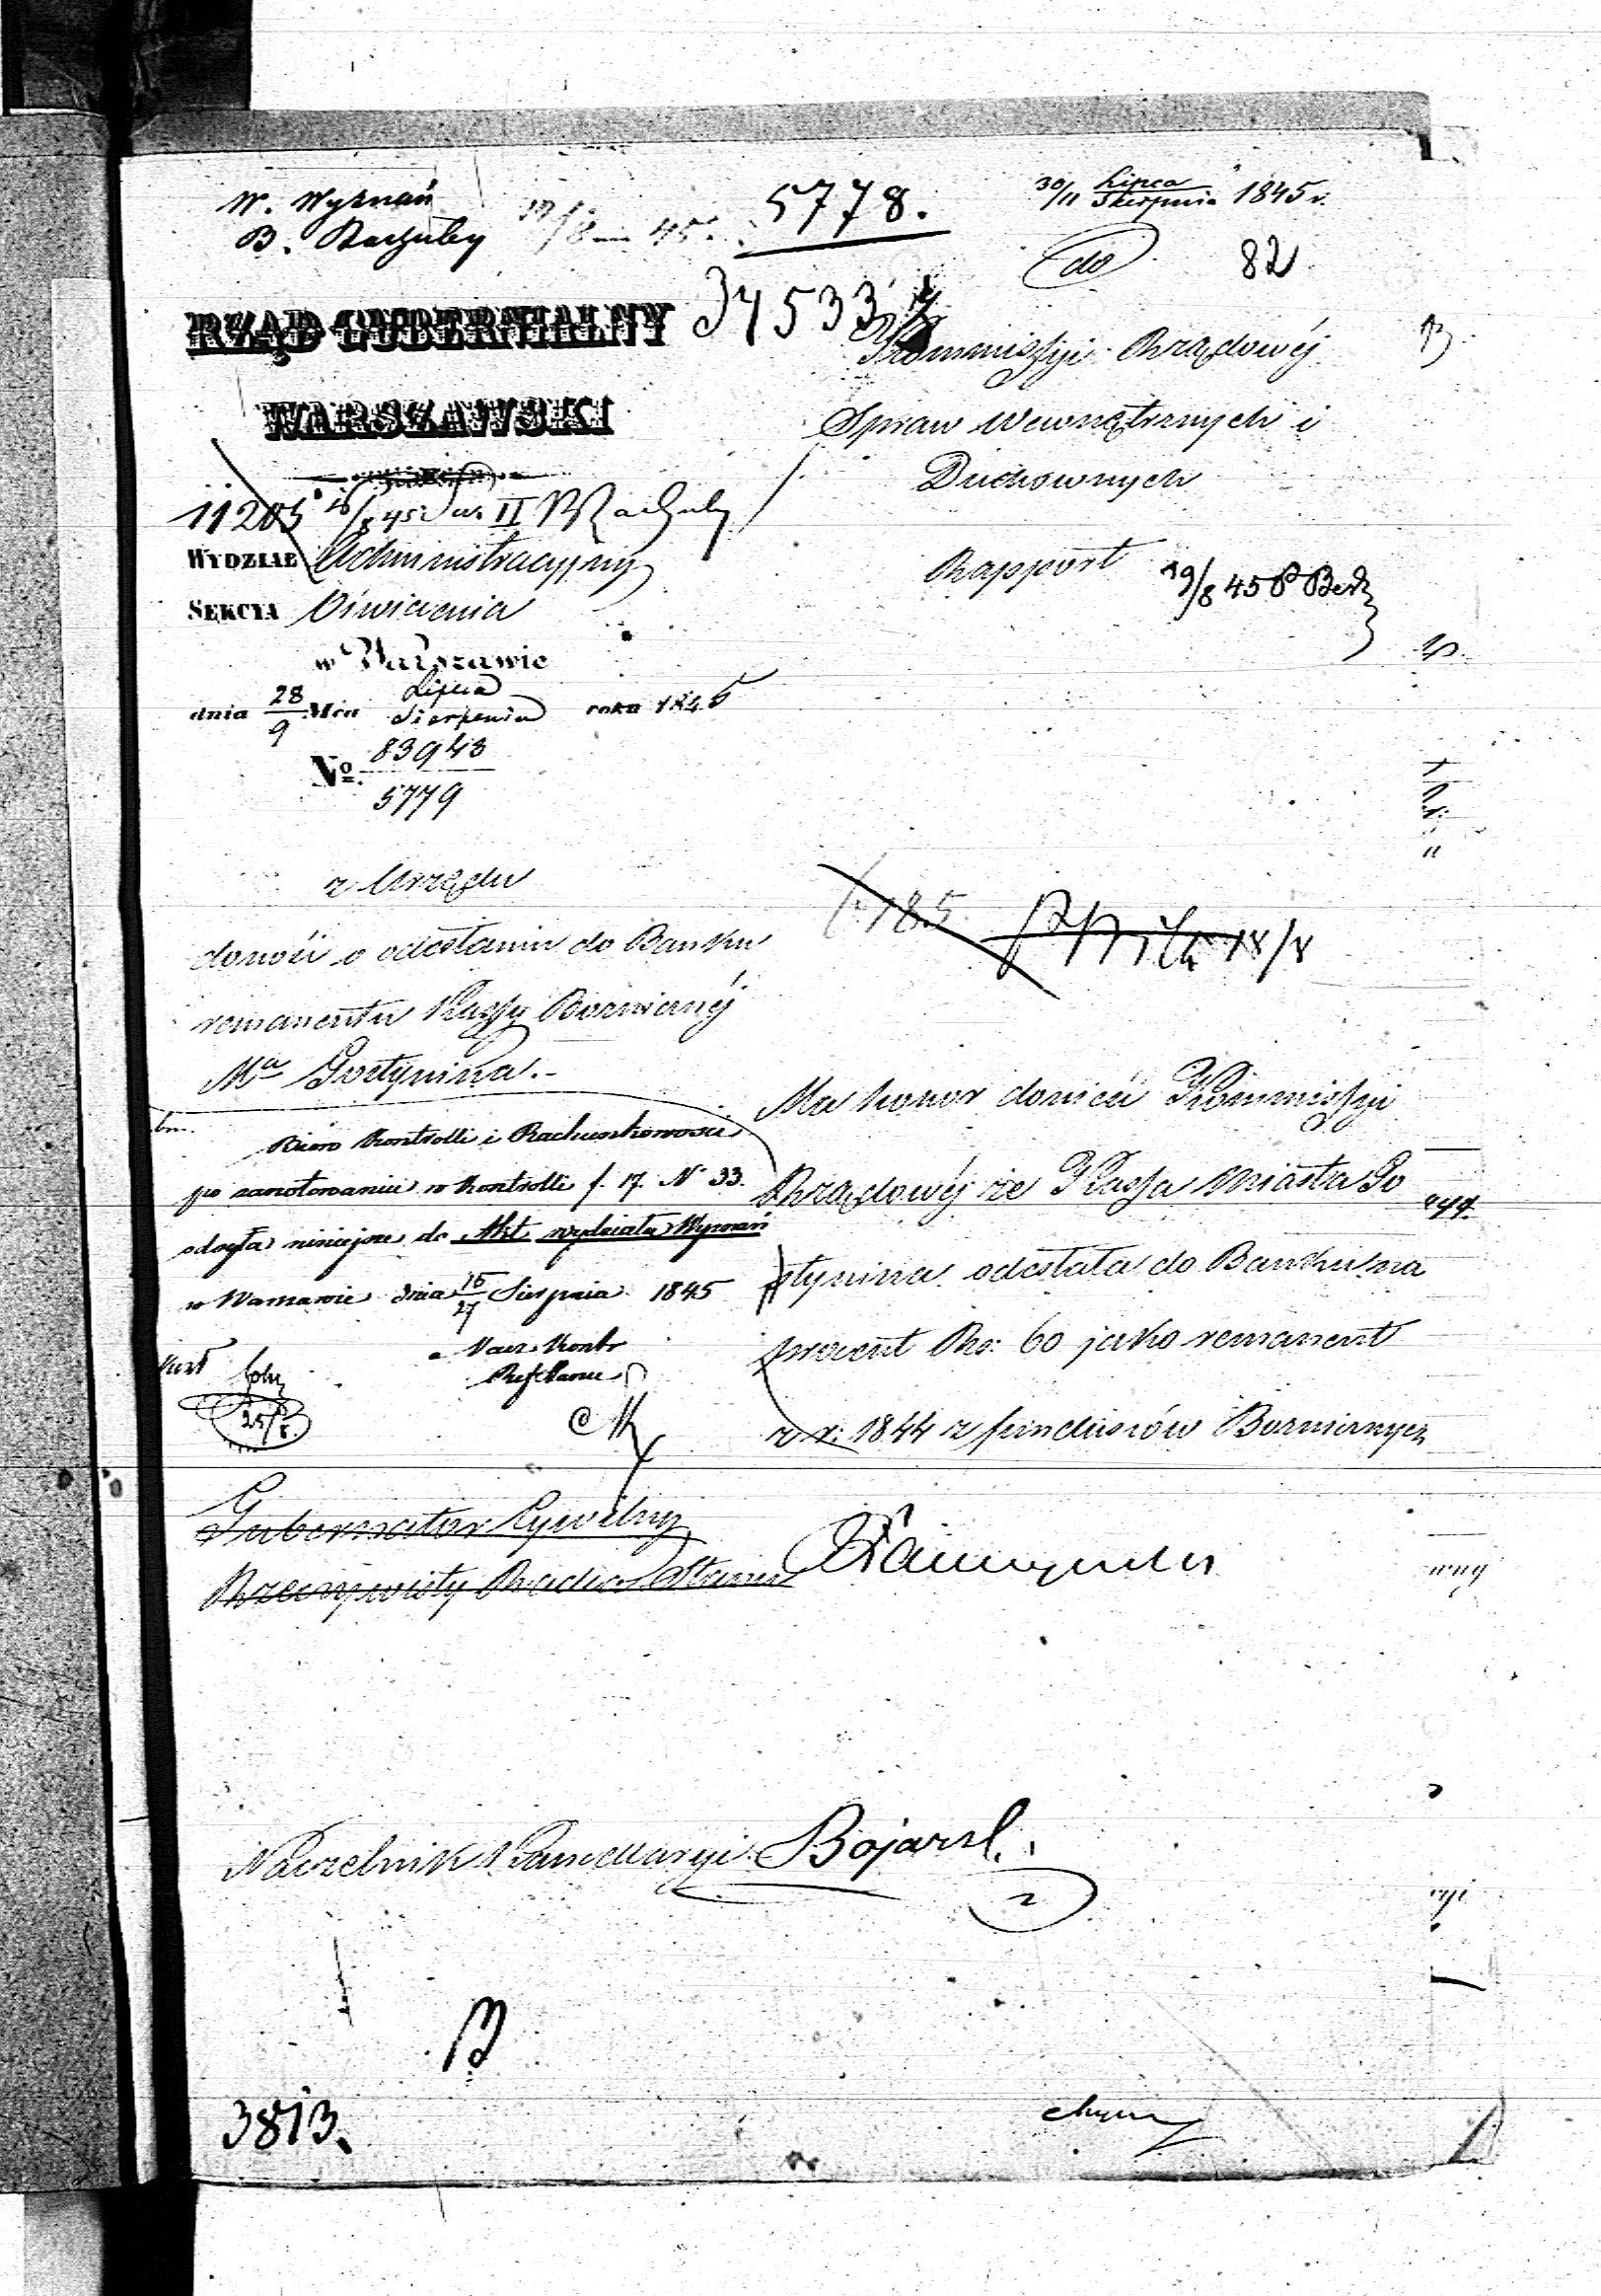 W. Wyznań
B. Rachuby 19/8 45. 5778.
30/11 Lipca Sierpnia 1845 r.
do 82
34533
RZĄD GUBERNIALNY
WARSZAWSKI
Kommissyi Rządowéj
Spraw Wewnętrznych i
Duchownych
11205 16/8 45 II
WYDZIAŁ Administracyjny
SEKCYA Oświecenia
w Warszawie
dnia 28/9 Mca Lipca Sierpnia roku 1845
No. 83943
5779
Rapport 19/8 45
z Urzędu
donosi o odesłaniu do Banku
remanentu Kassy Bożniczej
Ma Gostynina.
185 18/8
Biuro Kontrolli i Rachunkowości
po zanotowaniu w kontrolli f. 17. N 33.
odsyła niniejsze do Akt wydziału Wyznań
w Warszawie dnia 15/27 Sierpnia 1845
Nacz. Kontr
25/8
Ma honor donieść Kommissyi
Rządowéj że Kassa Miasta Go
stynina odesłała do Banku na
procent Rs: 60 jako remanent
z r: 1844 z funduszów Bożniczych
Gubernator Cywilny
Rzeczywisty Radca Stanu
Naczelnik Kancellaryi Bojarsk
3813.